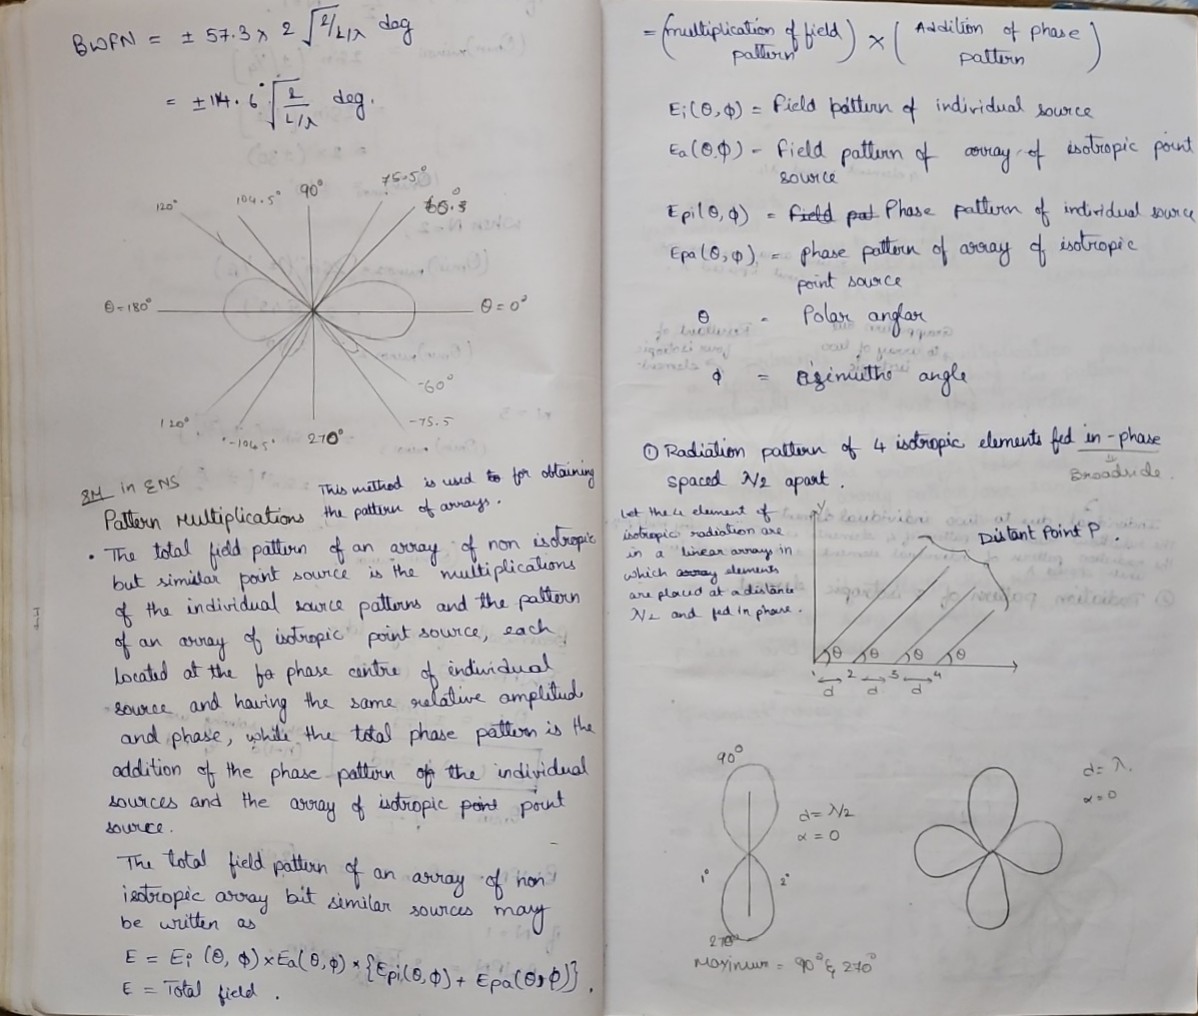 BWFN = ± 57.3 × 2 √2/L/λ deg
= ± 114.6° √2/L/λ deg.
120°
104.5°
90°
75.5°
θ=180°
θ=0°
-60°
-75.5
120°
-104.5°
270°
8M in ENS
This method is used to for obtaining
Pattern Multiplications the pattern of arrays.
• The total field pattern of an array of non isotropic
but similar point source is the multiplications
of the individual source patterns and the pattern
of an array of isotropic point source, each
located at the fo phase centre of individual
source and having the same relative amplitud
and phase, while the total phase pattern is the
addition of the phase pattern of the individual
sources and the array of isotropic point point
source.
The total field pattern of an array of non
isotropic array bit similar sources may
be written as
E = Ei (θ, ϕ) × Ea (θ, ϕ) × {Epi(θ, ϕ) + Epa(θ, ϕ)}.
E = Total field.
= (multiplication of field pattern) × (Addition of phase pattern)
Ei(θ, ϕ) = Field pattern of individual source
Ea(θ,ϕ) - Field pattern of array of isotropic point
source
Epi(θ, ϕ) = field pat Phase pattern of individual source
Epa(θ, ϕ) = phase pattern of array of isotropic
point source
θ - Polar anglar
ϕ = Azimuthe angle
① Radiation pattern of 4 isotropic elements fed in-phase
spaced λ/2 apart.
Broadside.
Let the 4 element of
isotropic radiation are
in a linear arrays in
which array elements
are placed at a distance
λ/2 and fed in phase.
Y
Distant Point P.
θ θ θ θ
1 2 3 4
d d d
90°
d= λ/2
α = 0
1°
2°
270°
Maximum = 90° & 270°
d= λ.
α = 0